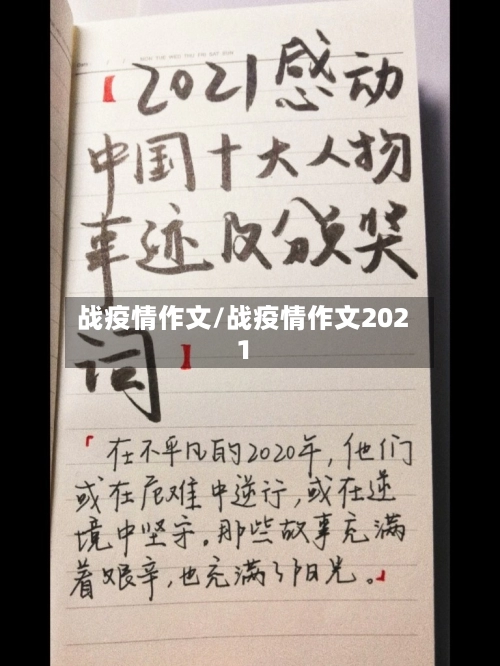 【2021感动
中国十大人物
事迹及颁奖
战疫情作文/战疫情作文202
1
词】
「在不平凡的2020年，他们
或在危难中逆行，或在逆
境中坚守。那些故事充满
着艰辛，也充满了阳光。」